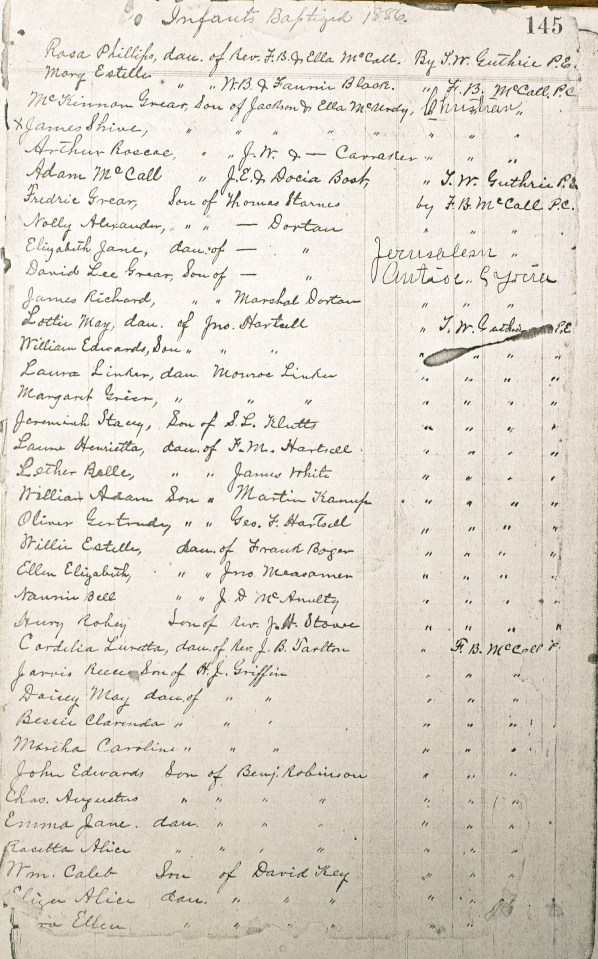 Infants Baptized 1886.
145
Rosa Phillips, dau. of Rev. F.B. & Ella McCall. By T.W. Guthrie P.E.
Mary Estelle " " W.B. & Fannie Black. " F.B. McCall. P.C
McKinnon Grear, Son of Jackson & Ella McCurdy, Christian "
x James Shive, " " " " " " "
Arthur Roscoe, " " J.W. & — Carraker " " "
Adam McCall " J.E. & Docia Bost, " T.W. Guthrie P.E
Fredric Grear, Son of Thomas Starnes by F.B. McCall P.C.
Nolly Alexander, " " — Dorton " " "
Elizabeth Jane, dau. of — " Jerusalem "
David Lee Grear, Son of — "
James Richard, " " Marshal Dorton " " "
Lottie May, dau. of Jno. Hartsell " T.W. Guthrie P.E
William Edwards, Son " " " " " " "
Laura Linker, dau Monroe Linker " " " "
Margaret Grier, " " " " " " "
Jeremiah Stacy, Son of S.L. Klutts " " " "
Laura Henrietta, dau. of F.M. Hartsell " " " "
Lether Belle, " " James White " " " "
William Adam Son " Martin " " " "
Oliver Gertrude, " " Geo. F. Hartsell " " " "
Willie Estelle, dau. of Frank Boger " " " "
Ellen Elizabeth, " " Jno Measamer " " " "
Nannie Bell " " J D McAnulty " " " "
Hury Rohey Son of Rev. J.H. Stowe " " " "
Cordelia Luretta, dau. of Rev. J.B. Tarlton " F.B. McCall P.
Jarvis Reece Son of H.J. Griffin " " "
Daisey May dau. of " " " " "
Bessie Clarenda " " " " " "
Martha Caroline " " " " " "
John Edwards Son of Benj. Robinson " " "
Chas. Augustus " " " " " " "
Emma Jane. dau. " " " " " "
Rosetta Alice " " " " " " "
Wm. Caleb Son of David Key " " "
Eliza Alice dau. " " " " " "
Ellen " " " " " " "